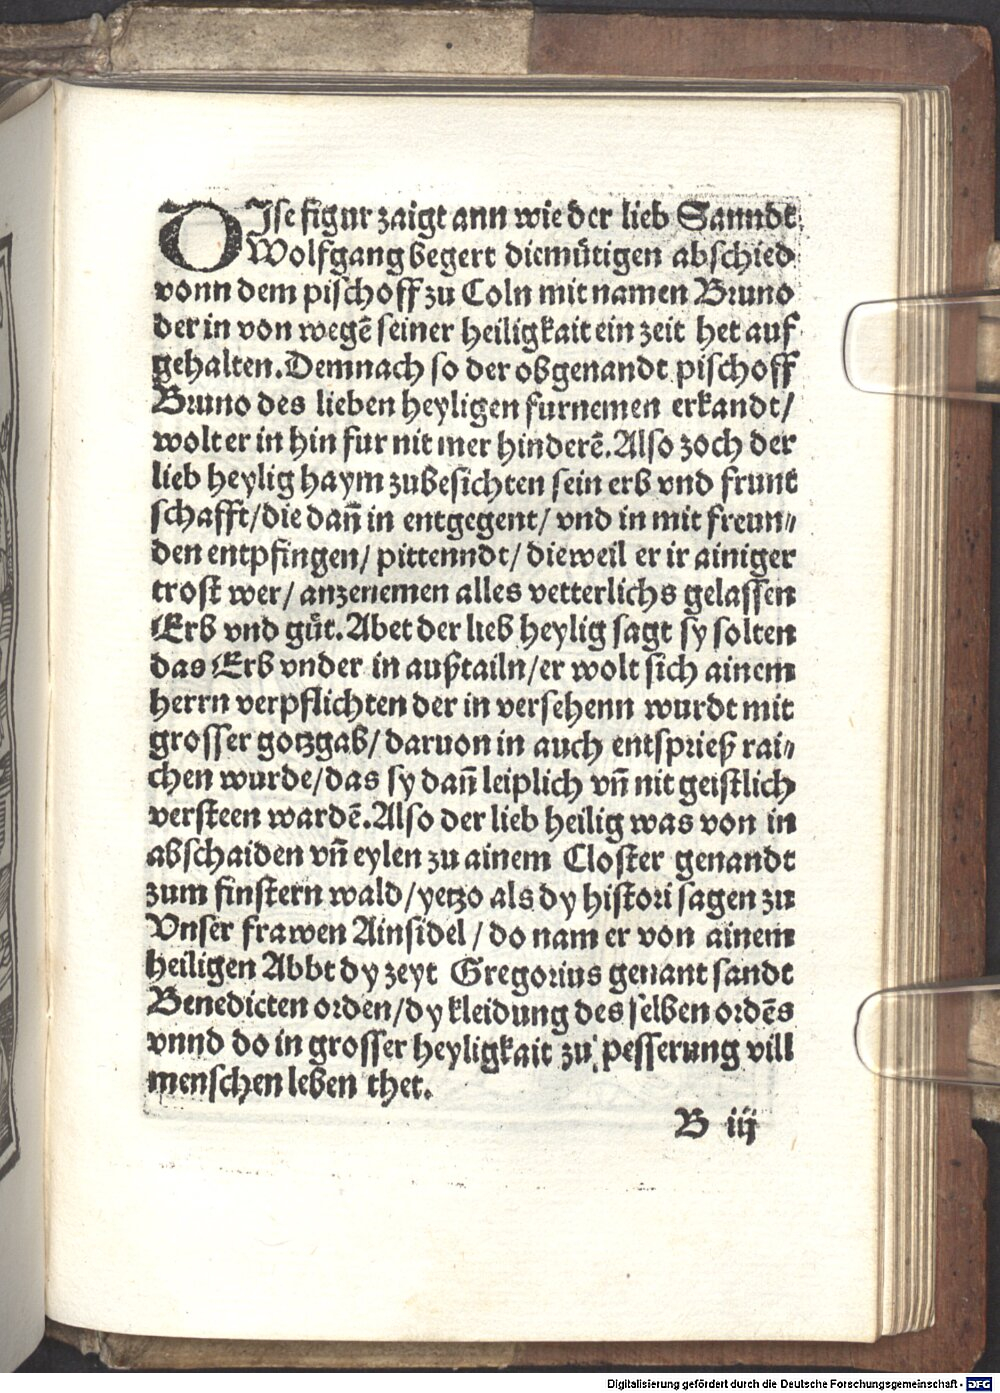 DIse figur zaigt ann wie der lieb Sanndt
Wolfgang begert diemütigen abschied
vonn dem pischoff zu Coln mit namen Bruno
der in von wegē seiner heiligkait ein zeit het auf
gehalten. Demnach so der obgenandt pischoff
Bruno des lieben heyligen furnemen erkandt/
wolt er in hin fur nit mer hinderē. Also zoch der
lieb heylig haym zubesichten sein erb vnd frunt
schafft/die dañ in entgegent/ vnd in mit freun⸗
den entpfingen/ pittenndt/ dieweil er ir ainiger
trost wer/ anzenemen alles vetterlichs gelassen
Erb vnd gůt. Abet der lieb heylig sagt sy solten
das Erb vnder in außtailn/er wolt sich ainem
herrn verpflichten der in versehenn wurdt mit
grosser gotzgab/ daruon in auch entsprieß rai⸗
chen wurde/das sy dañ leiplich vñ nit geistlich
versteen wardē. Also der lieb heilig was von in
abschaiden vñ eylen zu ainem Closter genandt
zum finstern wald/yetzo als dy histori sagen zu
Vnser frawen Ainsidel / do nam er von ainem
heiligen Abbt dy zeyt Gregorius genant sandt
Benedicten orden/dy kleidung des selben ordēs
vnnd do in grosser heyligkait zu pesserung vill
menschen leben thet.
B iij
Digitalisierung gefördert durch die Deutsche Forschungsgemeinschaft - DFG